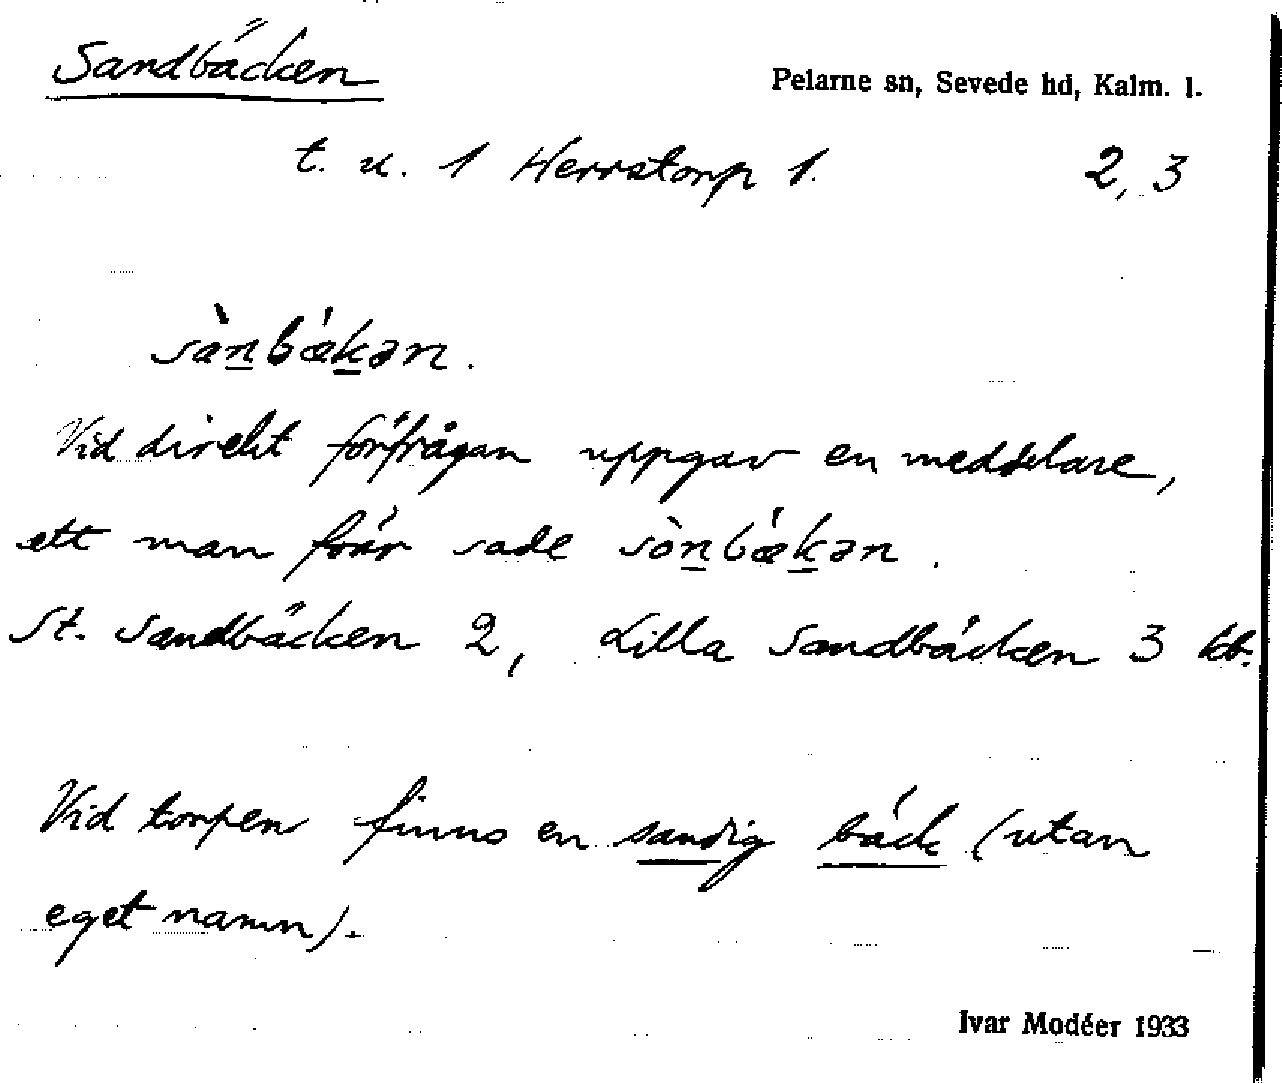 Sandbäcken
Pelarne sn, Sevede hd, Kalm. l.
t. u. 1 Herrstorp 1. 2, 3
sànbǽkən.
Vid direkt förfrågan uppgav en meddelare,
att man förr sade sònbǽkən.
St. Sandbäcken 2, Lilla Sandbäcken 3 kb.
Vid torpen finns en sandig bäck (utan
eget namn).
Ivar Modéer 1933